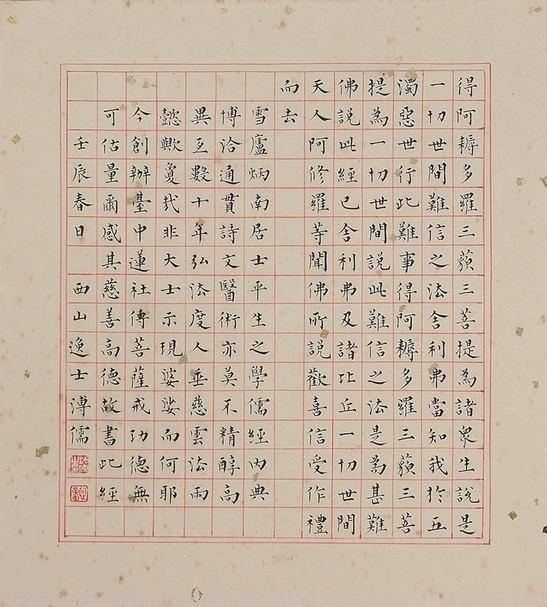 得阿耨多羅三藐三菩提為諸衆生說是
一切世間難信之法舍利弗當知我於五
濁惡世行此難事得阿耨多羅三藐三菩
提為一切世間說此難信之法是為甚難
佛說此經已舍利弗及諸比丘一切世間
天人阿修羅等聞佛所說歡喜信受作禮
而去
雪廬炳南居士平生之學儒經內典
博洽通貫詩文醫術亦莫不精醇高
異互數十年弘法度人垂慈雲法雨
懿歟夐哉非大士示現娑婆而何耶
今創辦臺中蓮社傳菩薩戒功德無
可估量爾感其慈善高德故書此經
壬辰春日 西山逸士溥儒